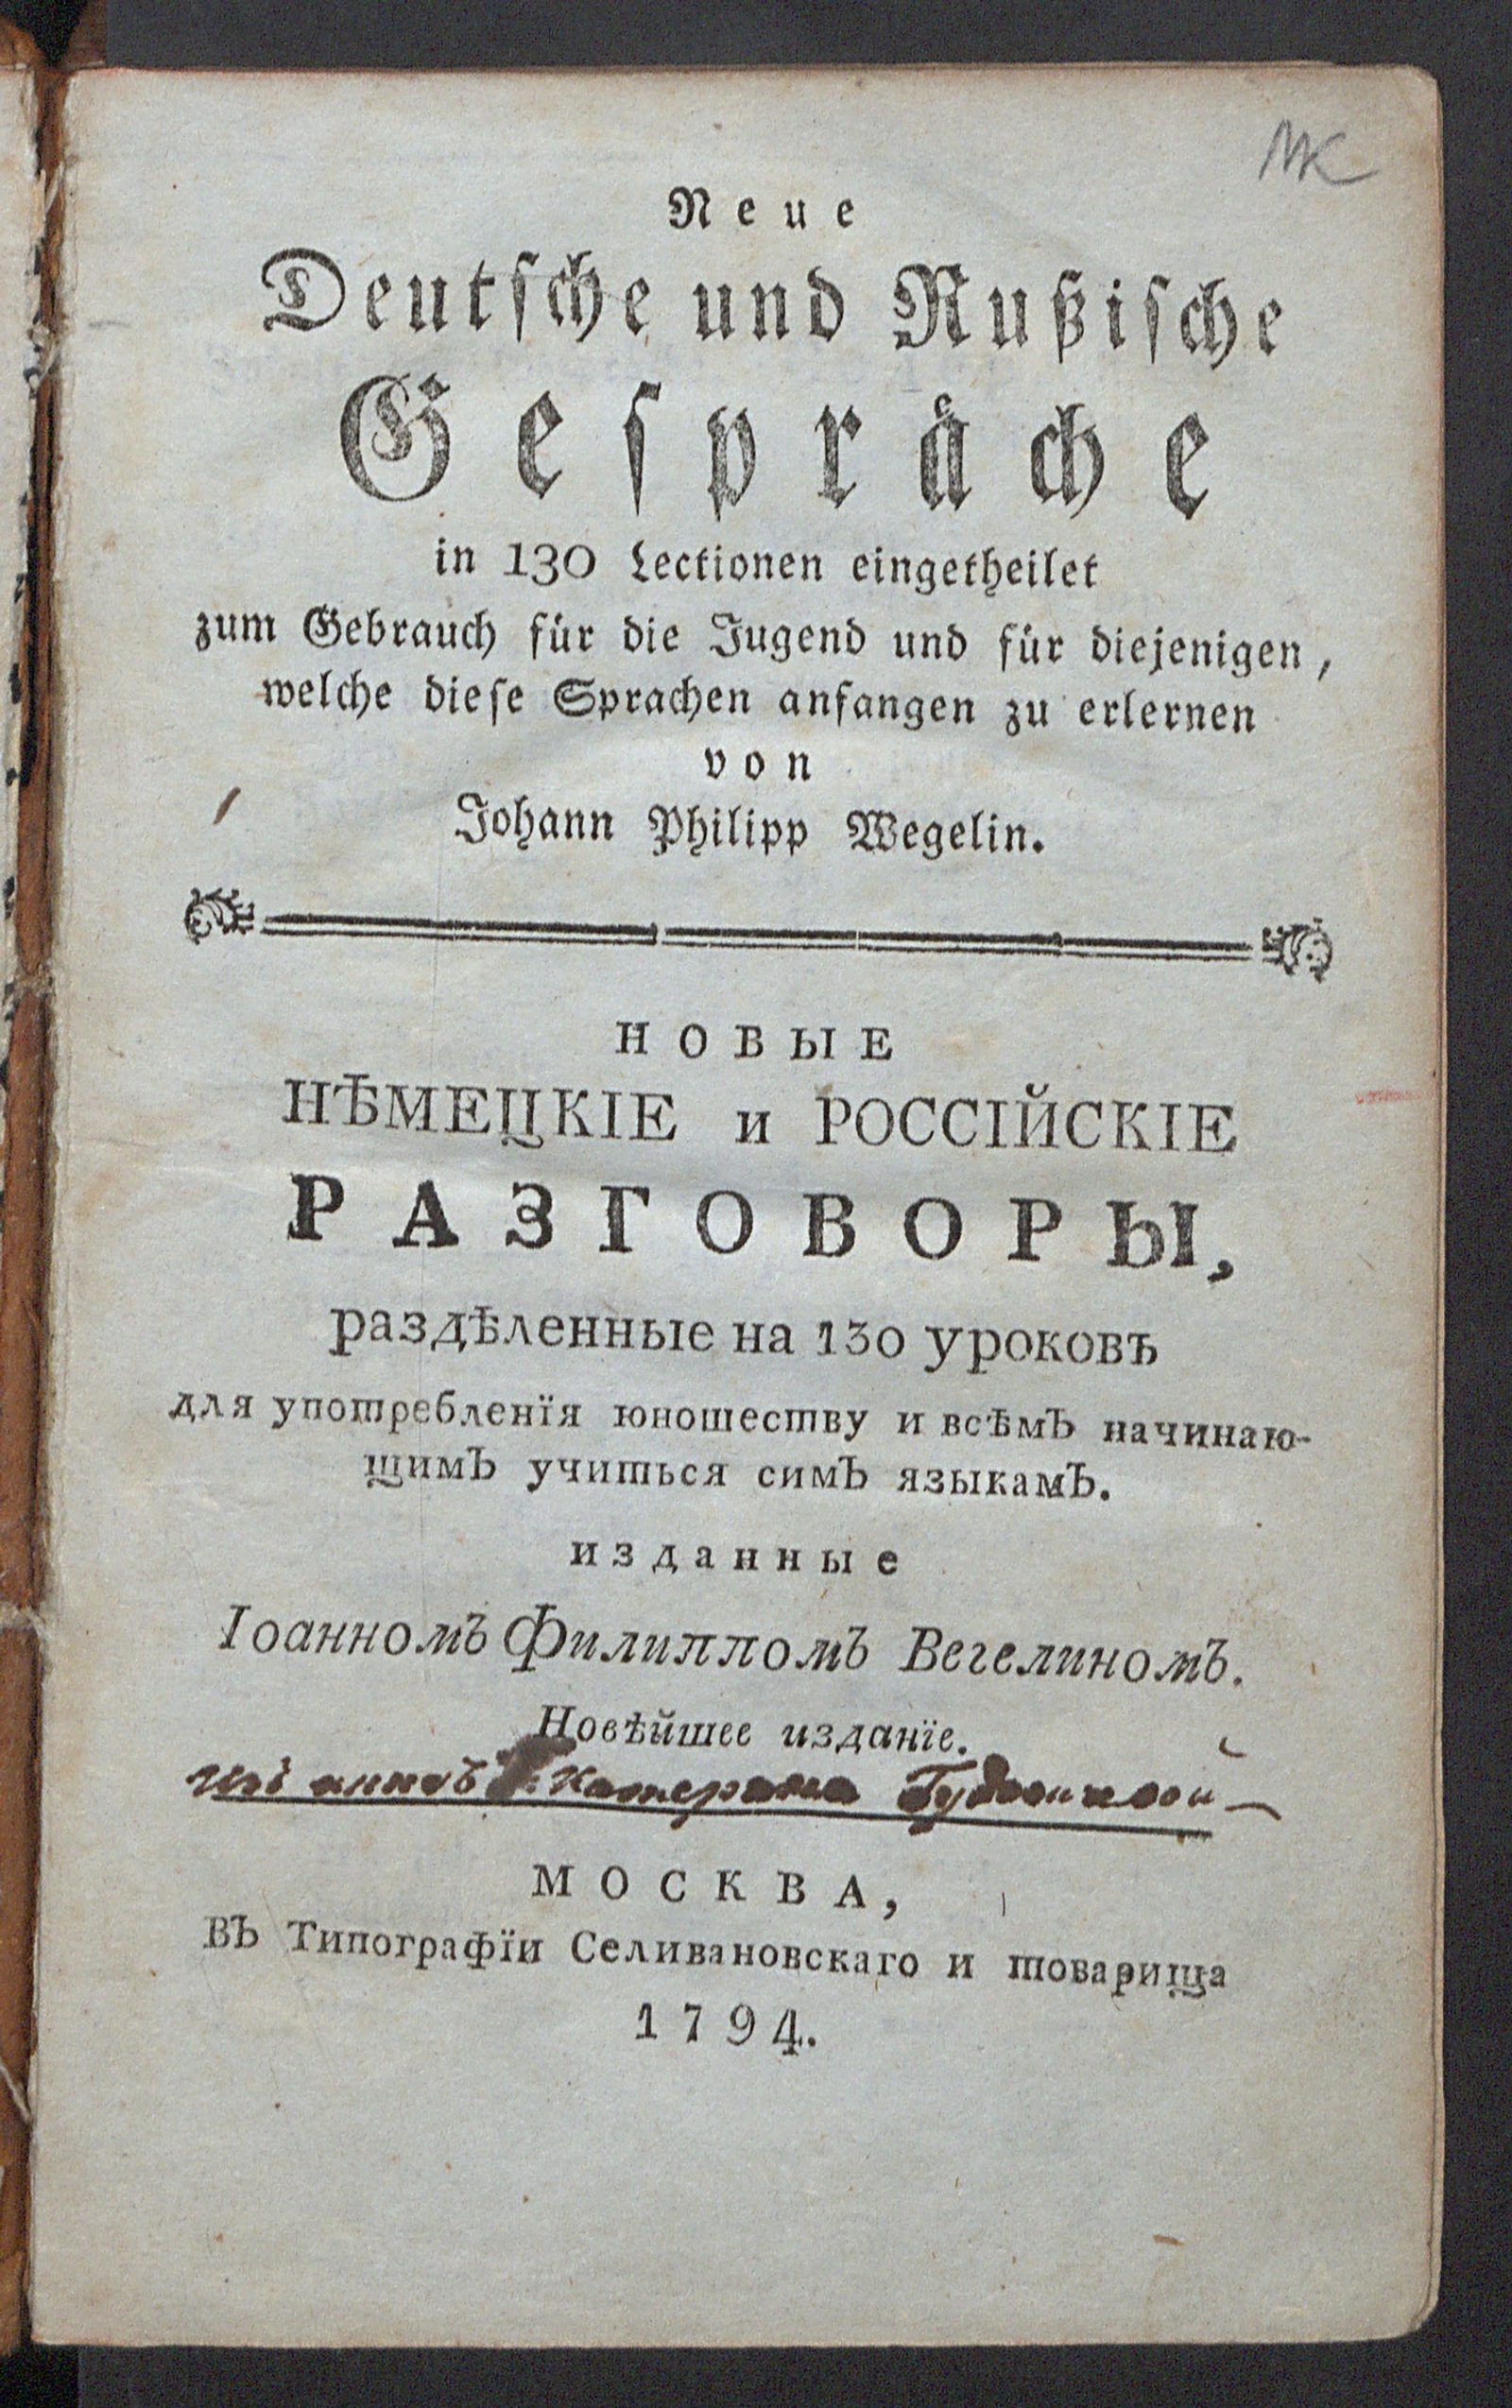 МК
Neue
Deutsche und Rußische
Gespräche
in 130 Lectionen eingetheilet
zum Gebrauch für die Jugend und für diejenigen,
welche diese Sprachen anfangen zu erlernen
von
Johann Philipp Wegelin.
НОВЫЕ
НѢМЕЦКІЕ и РОССІЙСКІЕ
РАЗГОВОРЫ,
раздѣленные на 130 уроковъ
для употребленїя юношеству и всѣмъ начинаю-
щимъ учиться симъ языкамъ.
изданные
Іоанномъ Филиппомъ Вегелиномъ.
Новѣйшее изданїе.
МОСКВА,
Въ Типографїи Селивановскаго и товарища
1794.